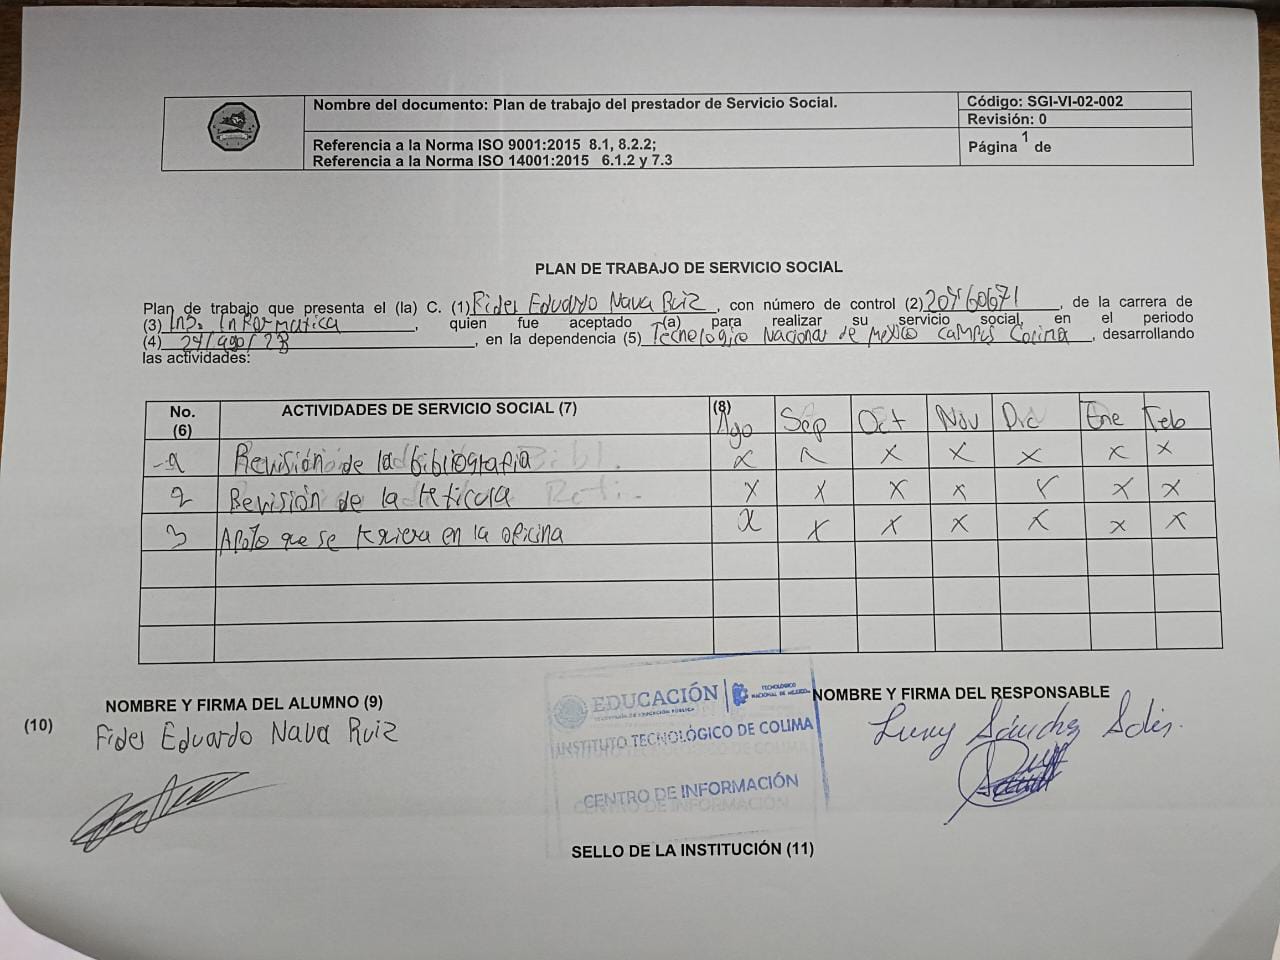 Nombre del documento: Plan de trabajo del prestador de Servicio Social.
Código: SGI-VI-02-002
Revisión: 0
Referencia a la Norma ISO 9001:2015 8.1, 8.2.2;
Referencia a la Norma ISO 14001:2015 6.1.2 y 7.3
Página 1 de
PLAN DE TRABAJO DE SERVICIO SOCIAL
Plan de trabajo que presenta el (la) C. (1) Fides Eduardo Nava Ruiz, con número de control (2) 20460671, de la carrera de
(3) Ing. Informatica, quien fue aceptado (a) para realizar su servicio social, en el periodo
(4) 27/ago/23, en la dependencia (5) Tecnologico Nacional de Mexico Campus Colima, desarrollando
las actividades:
No. (6) ACTIVIDADES DE SERVICIO SOCIAL (7) (8) Ago Sep Oct Nov Dic Ene Feb
1 Revisión de la bibliografia x x x x x x x
2 Revisión de la reticula x x x x x x x
3 Apoyo que se requiera en la oficina x x x x x x x
NOMBRE Y FIRMA DEL ALUMNO (9)
NOMBRE Y FIRMA DEL RESPONSABLE
(10)
Fides Eduardo Nava Ruiz
Sánchez
EDUCACIÓN
SECRETARÍA DE EDUCACIÓN PÚBLICA
TECNOLÓGICO
NACIONAL DE MÉXICO
INSTITUTO TECNOLÓGICO DE COLIMA
CENTRO DE INFORMACIÓN
SELLO DE LA INSTITUCIÓN (11)